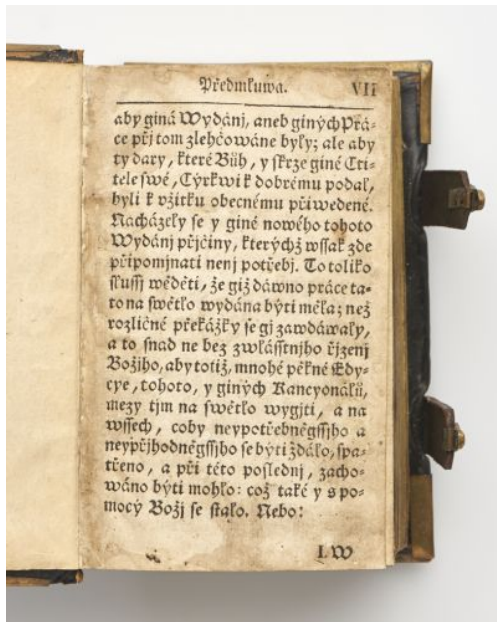 Předmluwa. VII
aby giná Wydánj, aneb giných Prá-
ce při tom zlehčowáne byly; ale aby
ty dary, které Bůh, y skrze giné Cti-
tele swé, Cýrkwi k dobrému podal,
byli k vžitku obecnému přiwedené.
Nacházely se y giné nowého tohoto
Wydánj přjčiny, kterýchž wssak zde
připomjnati nenj potřebj. To toliko
slussj wěděti, že giž dáwno práce ta-
to na swětlo wydána býti měla; než
rozličné překážky se gj zawdáwaly,
a to snad ne bez zwlásstnjho řjzenj
Božjho, aby totiž, mnohé pěkné Edy-
cye, tohoto, y giných Kancyonálů,
mezy tjm na swětlo wygjti, a na
wssech, coby neypotřebněgssjho a
neypřjhodněgssjho se býti zdálo, spa-
třeno, a při této poslednj, zacho-
wáno býti mohlo: což také y s po-
mocý Božj se stalo. Nebo:
I. W